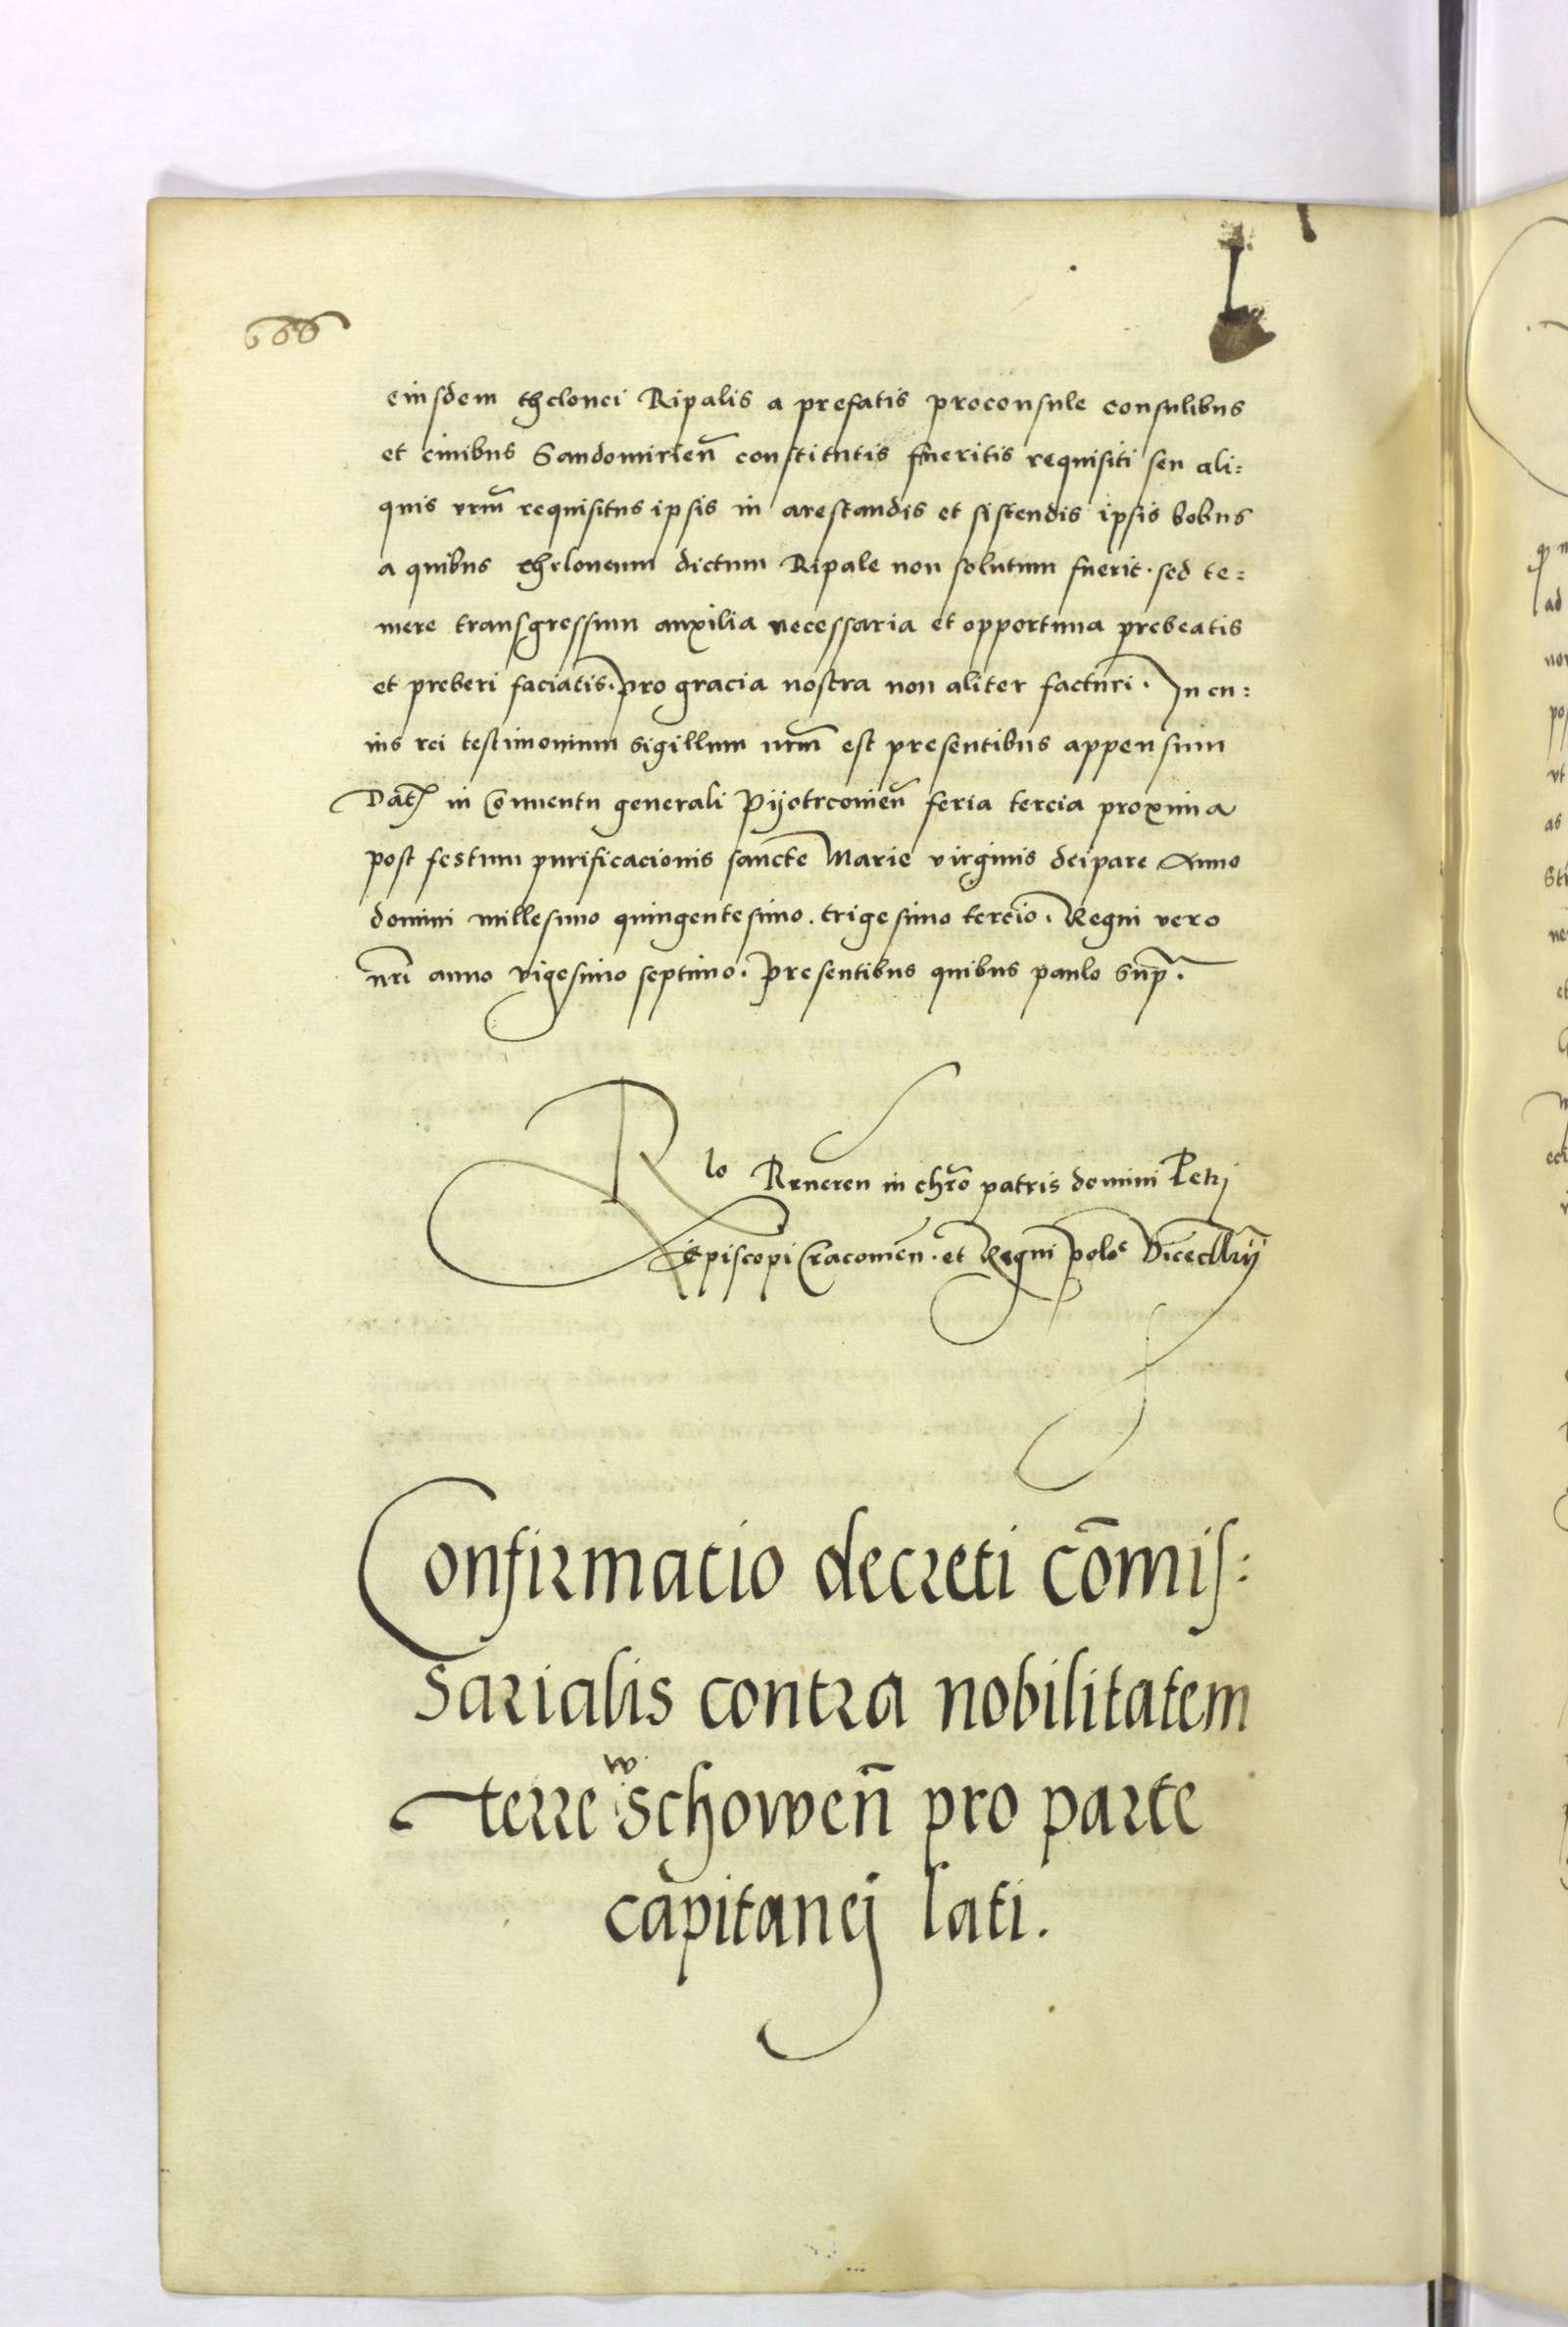 666
eiusdem thelonei Ripalis a prefatis proconsule consulibus
et ciuibus Sandomirien̄ constitutis fueritis requisiti seu ali:
quis vrm̄ requisitus ipsis in arestandis et sistendis ipsis bobus
a quibus theloneum dictum Ripale non solutum fuerit. sed te:
mere transgressum auxilia necessaria et opportuna prebeatis
et preberi faciatis. pro gracia nostra non aliter facturi. In cu:
ius rei testimonium sigillum nrm̄ est presentibus appensum
Dat in Conuentu generali Pijotrcouien̄ feria tercia proxima
post festum purificacionis sancte Marie virginis deipare Anno
domini millesimo quingentesimo. trigesimo tercio. Regni vero
nrī anno vigesimo septimo. Presentibus quibus paulo Sup̄.
Rlo Reueren in chrō patris domini Petrj
Episcopi Cracouien̄. et Regni polo Vicecllrij
Confirmacio decreti cōmis:
sarialis contra nobilitatem
terre wschowen̄ pro parte
capitanej lati.